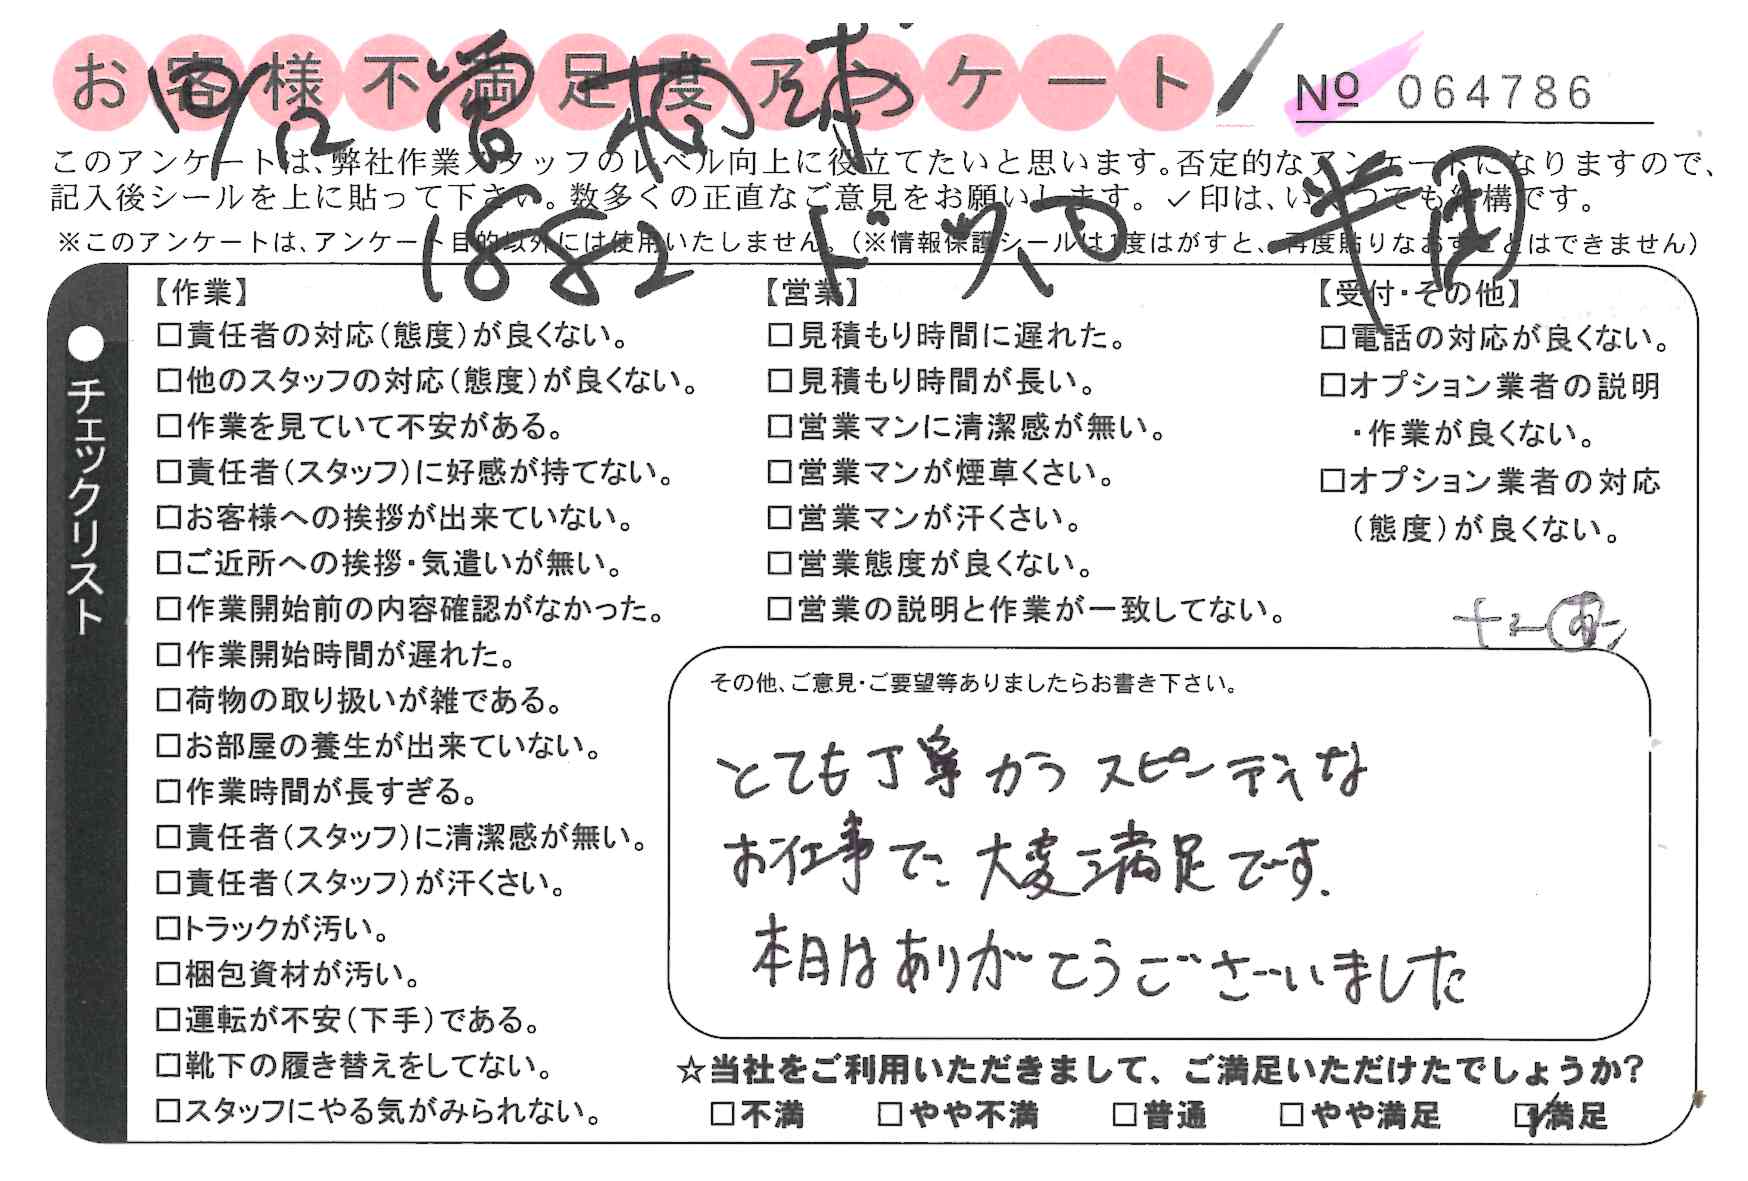 お客様不満足度アンケート
№ 064786
このアンケートは、弊社作業スタッフのレベル向上に役立てたいと思います。否定的なアンケートになりますので、
記入後シールを上に貼って下さい。数多くの正直なご意見をお願いします。✓印は、いくつでも結構です。
※このアンケートは、アンケート目的以外には使用いたしません。(※情報保護シールは1度はがすと、再度貼りなおすことはできません)
1882
●チェックリスト
【作業】
□責任者の対応(態度)が良くない。
□他のスタッフの対応(態度)が良くない。
□作業を見ていて不安がある。
□責任者(スタッフ)に好感が持てない。
□お客様への挨拶が出来ていない。
□ご近所への挨拶・気遣いが無い。
□作業開始前の内容確認がなかった。
□作業開始時間が遅れた。
□荷物の取り扱いが雑である。
□お部屋の養生が出来ていない。
□作業時間が長すぎる。
□責任者(スタッフ)に清潔感が無い。
□責任者(スタッフ)が汗くさい。
□トラックが汚い。
□梱包資材が汚い。
□運転が不安(下手)である。
□靴下の履き替えをしてない。
□スタッフにやる気がみられない。
【営業】
□見積もり時間に遅れた。
□見積もり時間が長い。
□営業マンに清潔感が無い。
□営業マンが煙草くさい。
□営業マンが汗くさい。
□営業態度が良くない。
□営業の説明と作業が一致してない。
【受付・その他】
□電話の対応が良くない。
□オプション業者の説明
・作業が良くない。
□オプション業者の対応
(態度)が良くない。
その他、ご意見・ご要望等ありましたらお書き下さい。
とても丁寧かつスピーディな
お仕事で、大変満足です.
本日はありがとうございました
☆当社をご利用いただきまして、ご満足いただけたでしょうか?
□不満 □やや不満 □普通 □やや満足 ☑満足